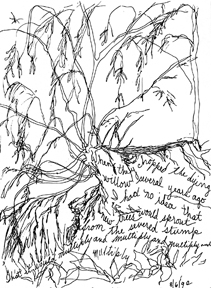 when they chopped the dying
willow several years ago
I had no idea that
new trees would sprout
from the severed stump
and multiply and multiply and multiply and
multiply